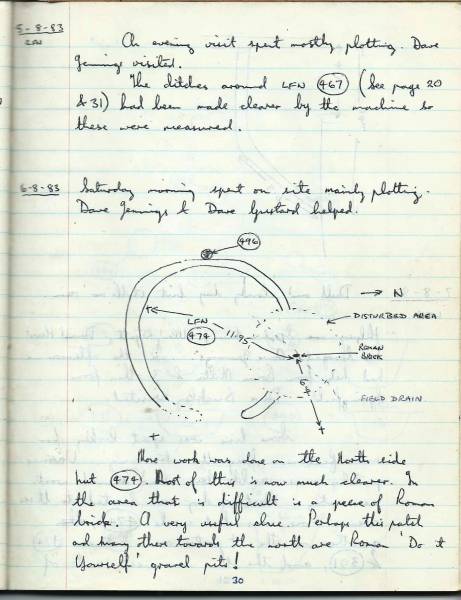 5-8-83
An evening visit spent mostly plotting. Dave
Jennings visited.
The ditches around LFN 467 (See page 20
& 31) had been made clearer by the machine so
these were measured.
6-8-83
Saturday morning spent on site mainly plotting.
Dave Jennings & Dave Gustard helped.
496
→ N
DISTURBED AREA
LFN
474
11.95
ROMAN
BRICK
6.4
FIELD DRAIN
More work was done on the North side
hut 474. Most of this is now much clearer. In
the area that is difficult is a piece of Roman
brick. A very useful clue. Perhaps this patch
and many others towards the north are Roman 'Do it
Yourself' gravel pits!
30